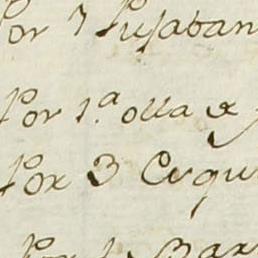 Por 7 Pujaban
Por 1.ª olla
Por 3 Cuqu
Por 1 Bar